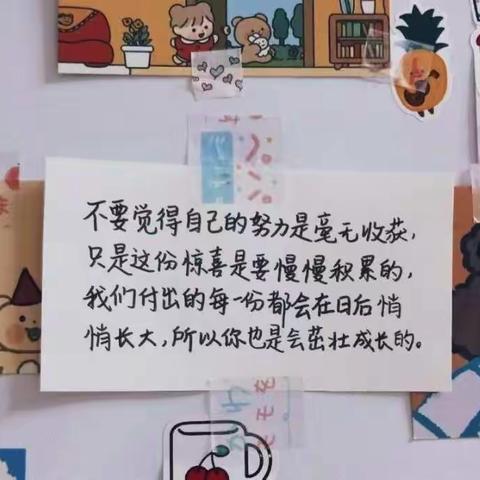 不要觉得自己的努力是毫无收获,
只是这份惊喜是要慢慢积累的,
我们付出的每一份都会在日后悄
悄长大,所以你也是会茁壮成长的。